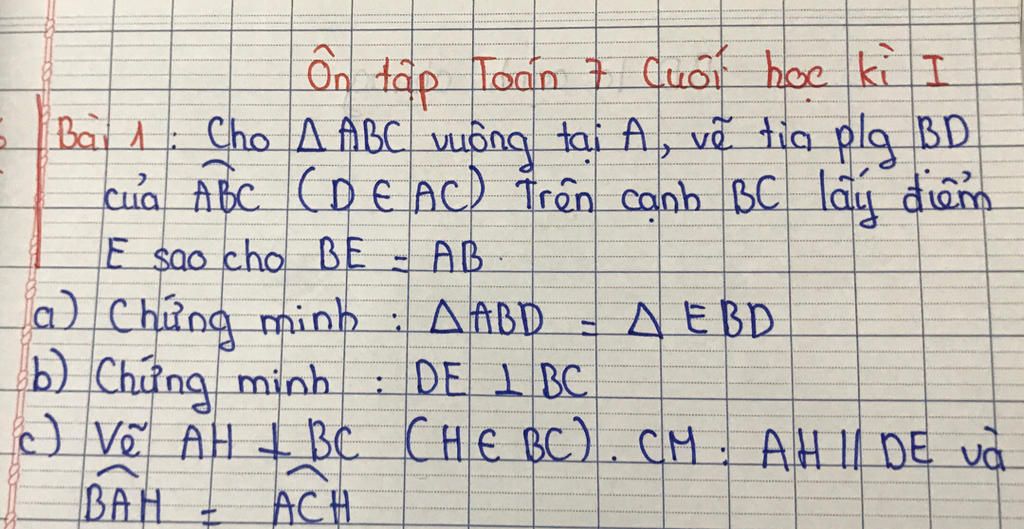 Ôn tập Toán 7 Cuối học kì I
Bài 1 : Cho Δ ABC vuông tại A, vẽ tia plg BD
của ABC (D ∈ AC) Trên cạnh BC lấy điểm
E sao cho BE = AB.
a) Chứng minh : Δ ABD = Δ EBD
b) Chứng minh : DE ⊥ BC
c) Vẽ AH ⊥ BC (H ∈ BC). CM : AH // DE và
BAH = ACH